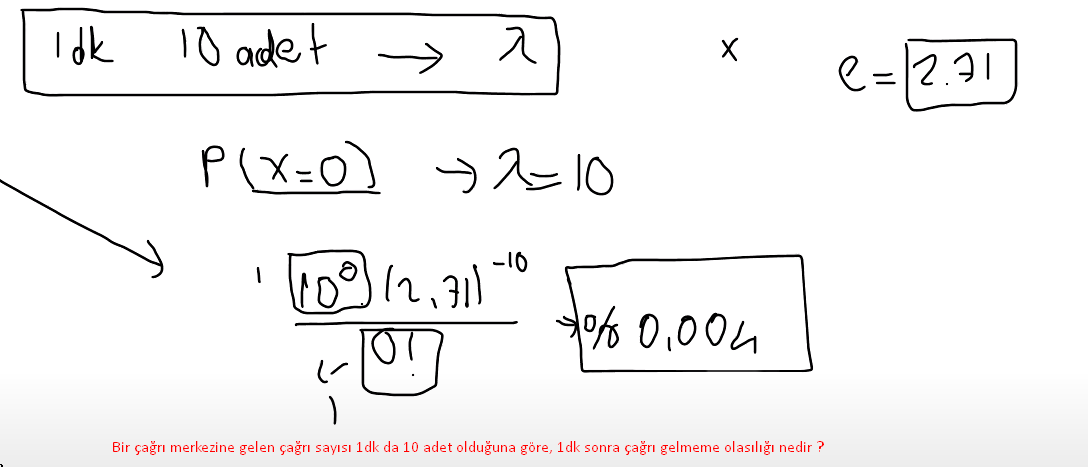 1dk 10 adet → λ
x
e = 2.71
P(x=0) → λ = 10
1 10⁰ (2,71)⁻¹⁰
0!
1
→ % 0,004
Bir çağrı merkezine gelen çağrı sayısı 1dk da 10 adet olduğuna göre, 1dk sonra çağrı gelmeme olasılığı nedir ?